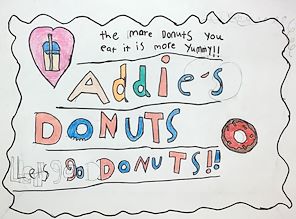 the more Donuts you
eat it is more Yummy!!
Addie's
DONUTS
Let's go DONUTS!!